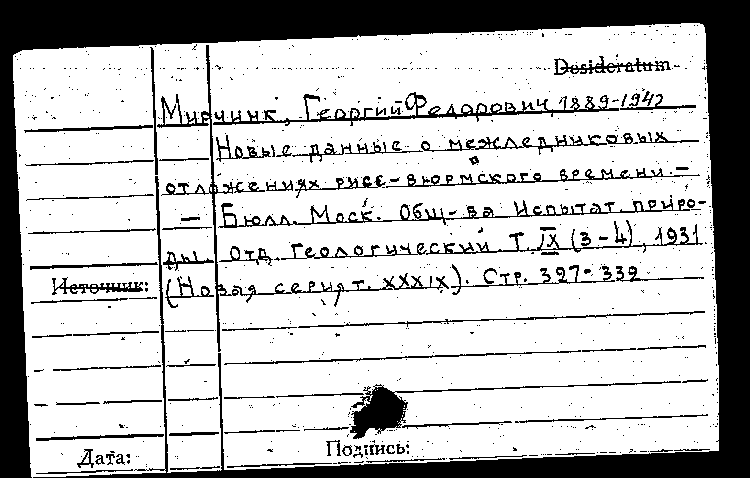 Desideratum
Мирчинк, Георгий Федорович, 1889-1942
Новые данные о межледниковых
отложениях рисс-вюрмского времени. –
– Бюлл. Моск. Общ-ва Испытат. приро-
ды. Отд. Геологический. Т. IX (3-4), 1931
Источник: (Новая серия т. XXXIX). Стр. 327-339
Дата: Подпись: